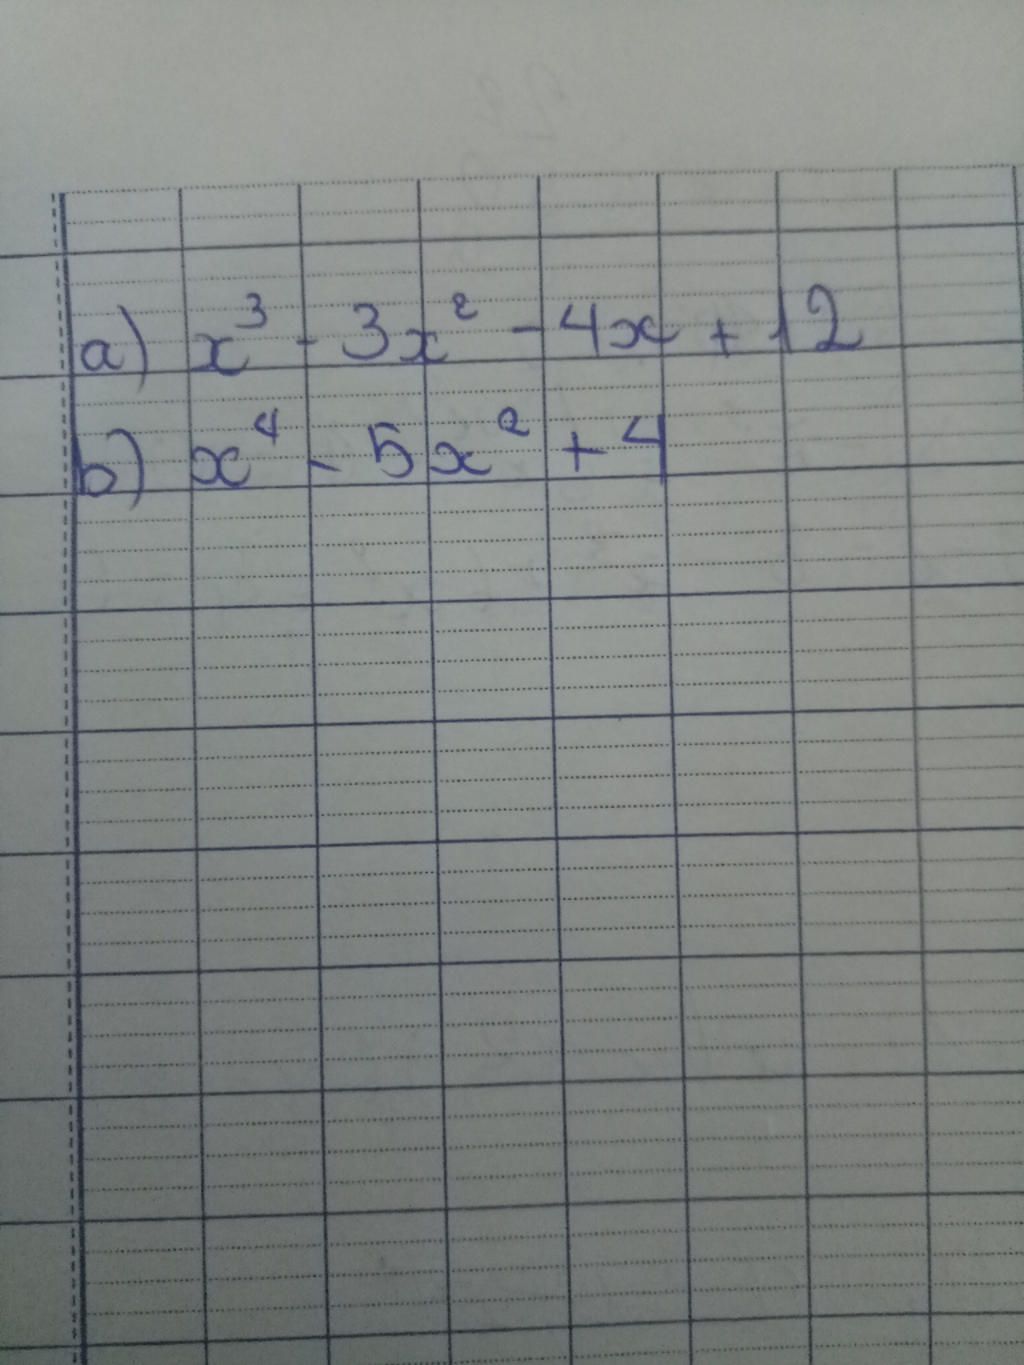 a) x³ - 3x² - 4x + 12
b) x⁴ - 5x² + 4